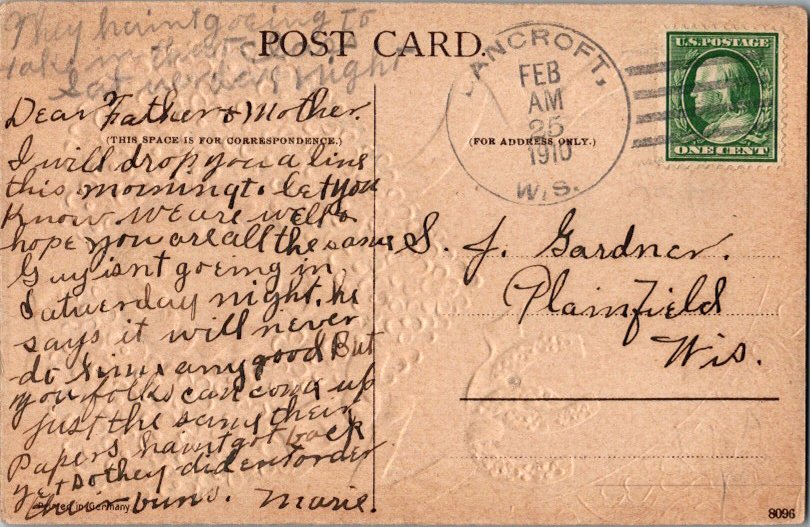 They haint goeing to
take in that
Saterday night
POST CARD.
Dear Father & Mother.
(THIS SPACE IS FOR CORRESPONDENCE.)
I will drop you a line
this morning to let you
know we are well &
hope you are all the same
Guy isnt goeing in
Saturday night. he
says it will never
do him any good But
you folks can come up
just the same their
Papers haint got back
yet so they didentorder
their buns. Marie.
Printed in Germany
(FOR ADDRESS ONLY.)
BANCROFT,
FEB
AM
25
1910
WIS.
U.S. POSTAGE
ONE CENT
S. J. Gardner.
Plainfield
Wis.
8096